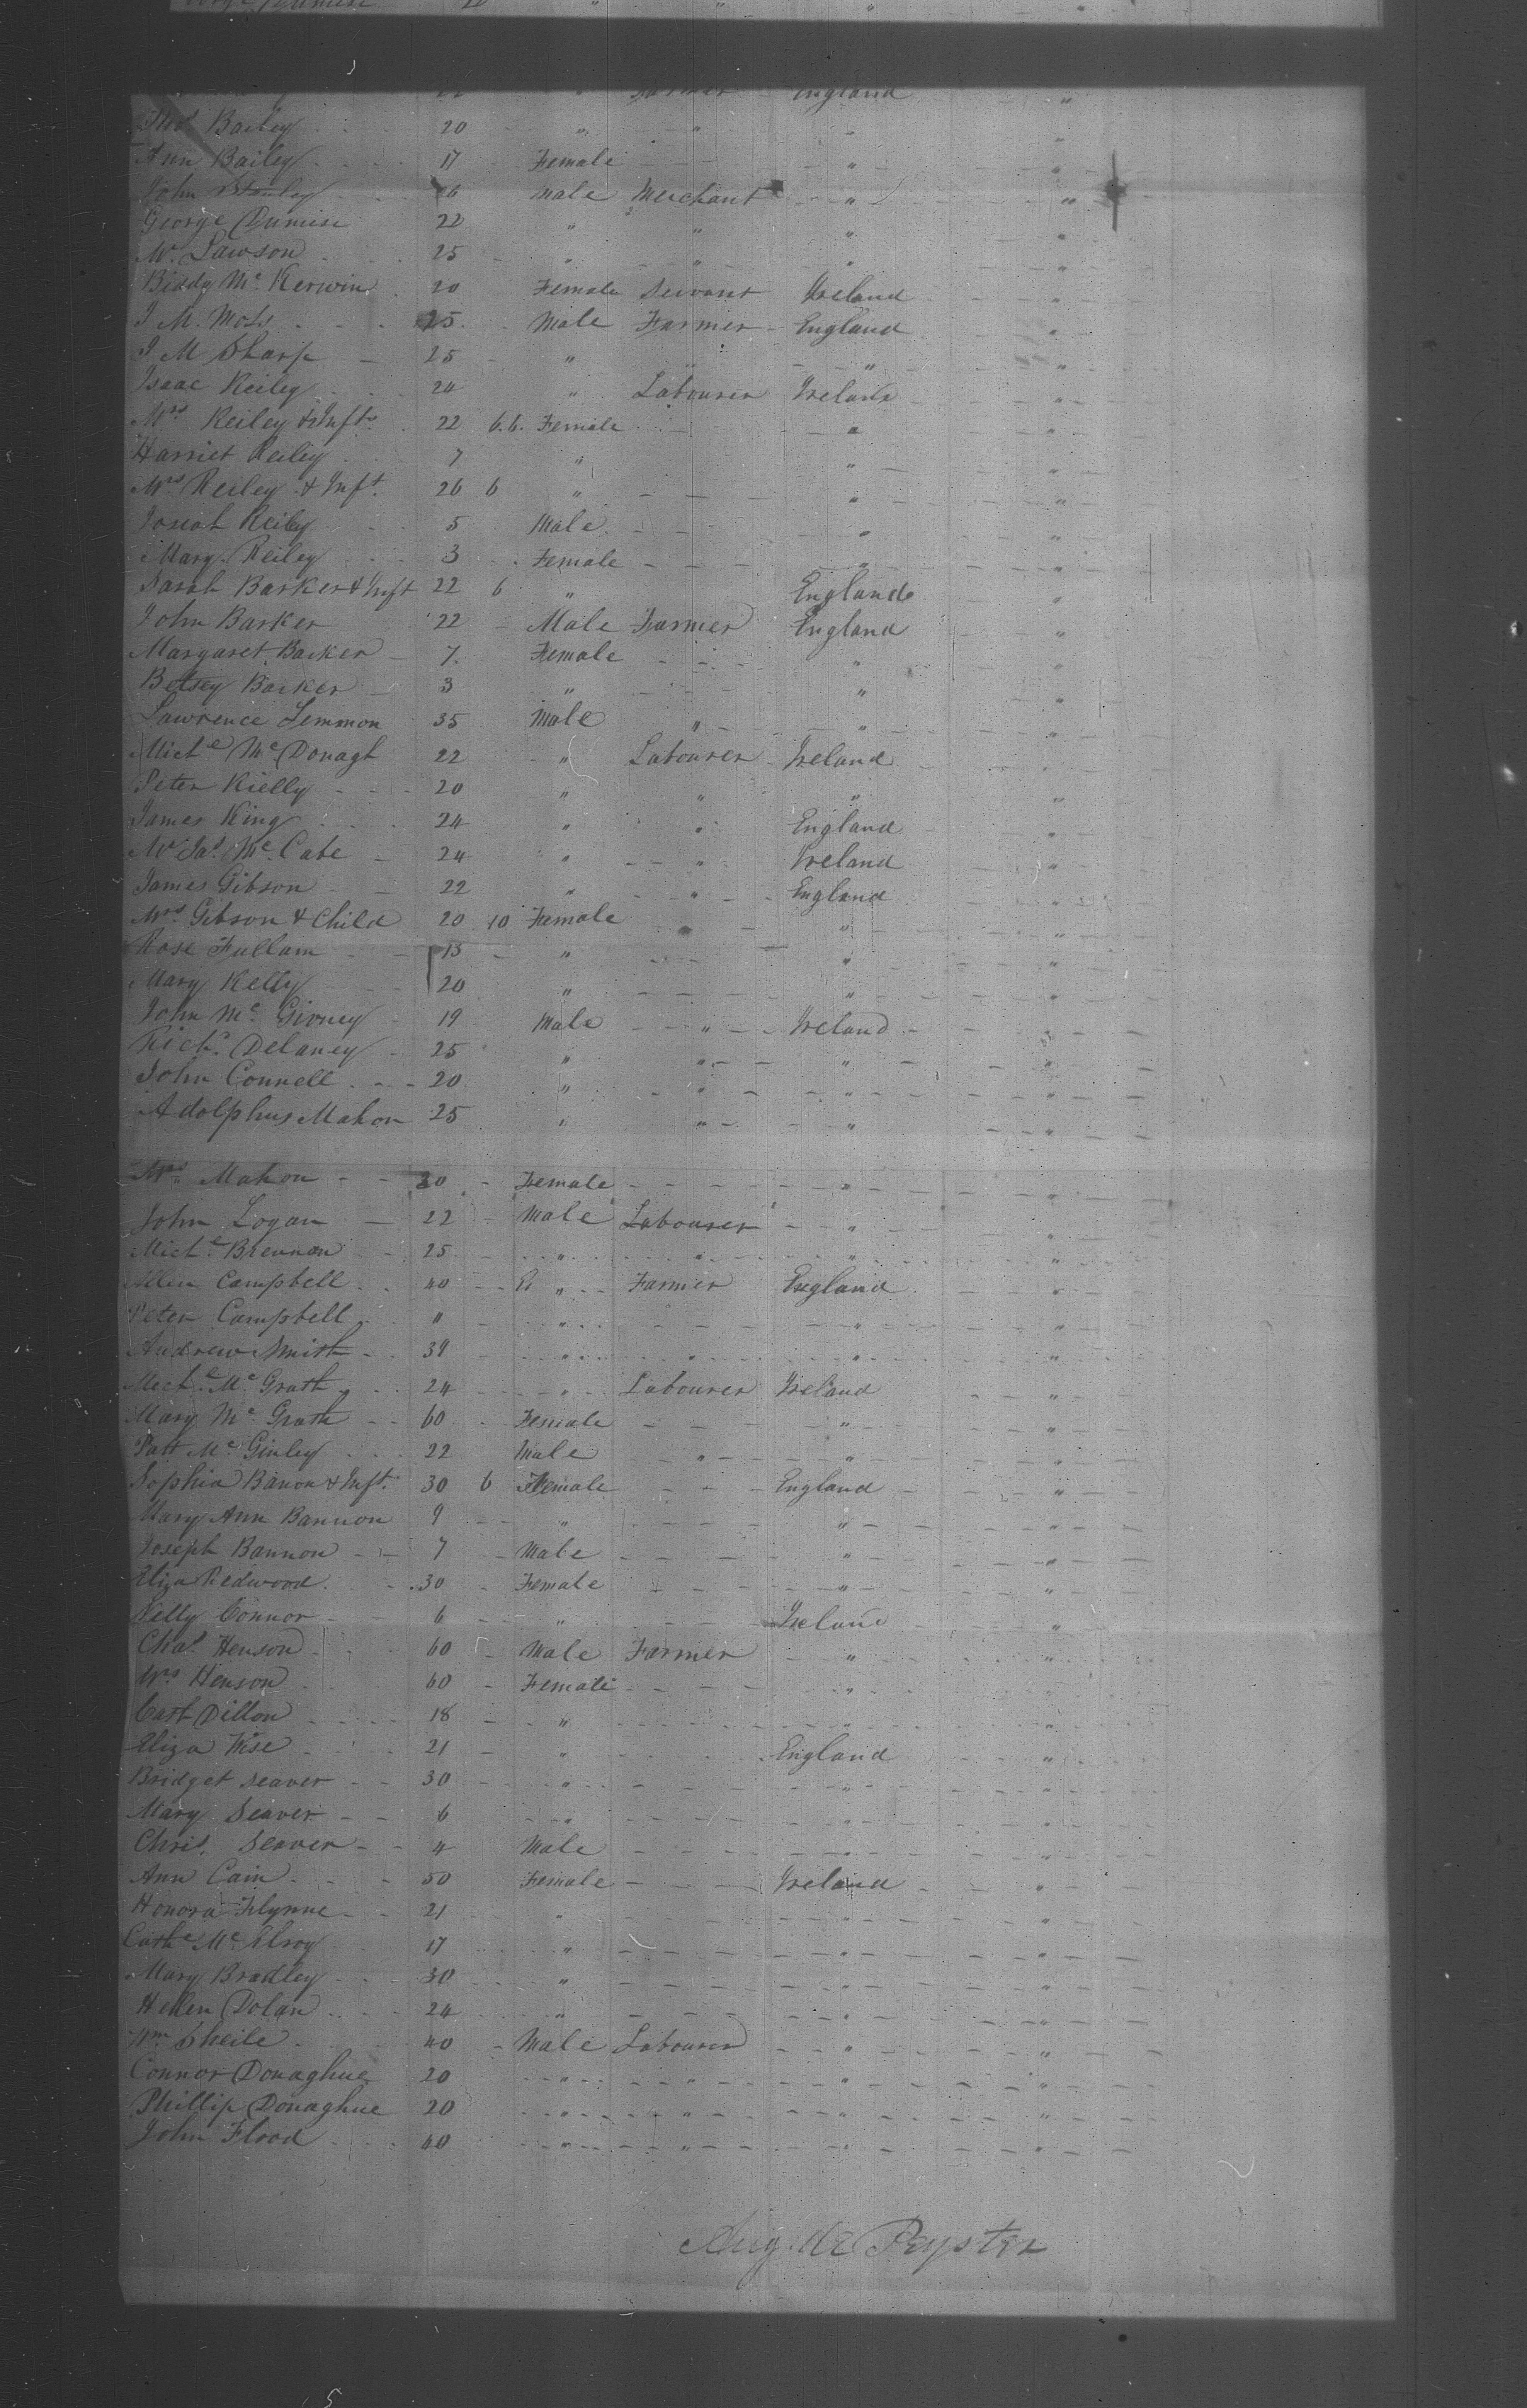 22 " Farmer England "
Thos Bailey 20 " " " "
Ann Bailey 17 Female " "
John Stanley 26 Male Merchant " "
George Dumise 22 " " " "
Mr. Lawson 25 " " " "
Biddy Mc. Kerwin 20 Female Servant Ireland "
J M. Moss 25 Male Farmer England "
J M Sharp 25 " " " "
Isaac Reiley 24 " Labourer Ireland "
Mrs Reiley & Infts. 22 6.6. Female " "
Harriet Reiley 7 " " "
Mrs Reiley & Inft. 26 6 " " "
Josiah Reiley 5 Male " "
Mary Reiley 3 Female " "
Sarah Barker & Inft 22 6 " England "
John Barker 22 Male Farmer England "
Margaret Barker 7 Female " "
Betsey Barker 3 " " "
Lawrence Lemmon 35 Male " " "
Miche Mc Donagh 22 " Labourer Ireland "
Peter Kielly 20 " " " "
James King 24 " " England "
Mr Jas. Mc. Cabe 24 " " Ireland "
James Gibson 22 " " England "
Mrs Gibson & Child 20 10 Female " "
Rose Fullam 13 " " "
Mary Kelly 20 " " "
John Mc. Givney 19 Male " Ireland "
Richd. Delaney 25 " " " "
John Connell 20 " " " "
Adolphus Mahon 25 " " " "
Mrs. Mahon 20 Female " "
John Logan 22 Male Labourer " "
Miche. Brennan 25 " " " "
Allen Campbell 40 " Farmer England "
Peter Campbell " " " "
Andrew Smith 39 " " " "
Miche. Mc. Grath 24 " Labourer Ireland "
Mary Mc. Grath 60 Female " "
Patt Mc. Ginley 22 Male " " "
Sophia Banon & Inft. 30 6 Female England "
Mary Ann Bannon 9 " " "
Joseph Bannon 7 Male " "
Eliza Redwood 30 Female " "
Kelly Connor 6 " Ireland "
Chas. Henson 60 Male Farmer " "
Mrs Henson 60 Female " "
Cath Dillon 18 " " "
Eliza Wise 21 " England "
Bridget Seaver 30 " " "
Mary Seaver 6 " " "
Chris. Seaver 4 Male " "
Ann Cain 50 Female Ireland "
Honora Flynne 21 " " "
Cathe Mc. Elroy 17 " " "
Mary Bradley 30 " " "
Hellen Dolan 24 " " "
Wm Sheile 40 Male Labourer " "
Connor Donaghue 20 " " " "
Phillip Donaghue 20 " " " "
John Flood 40 " " " "
Aug. de Peyster